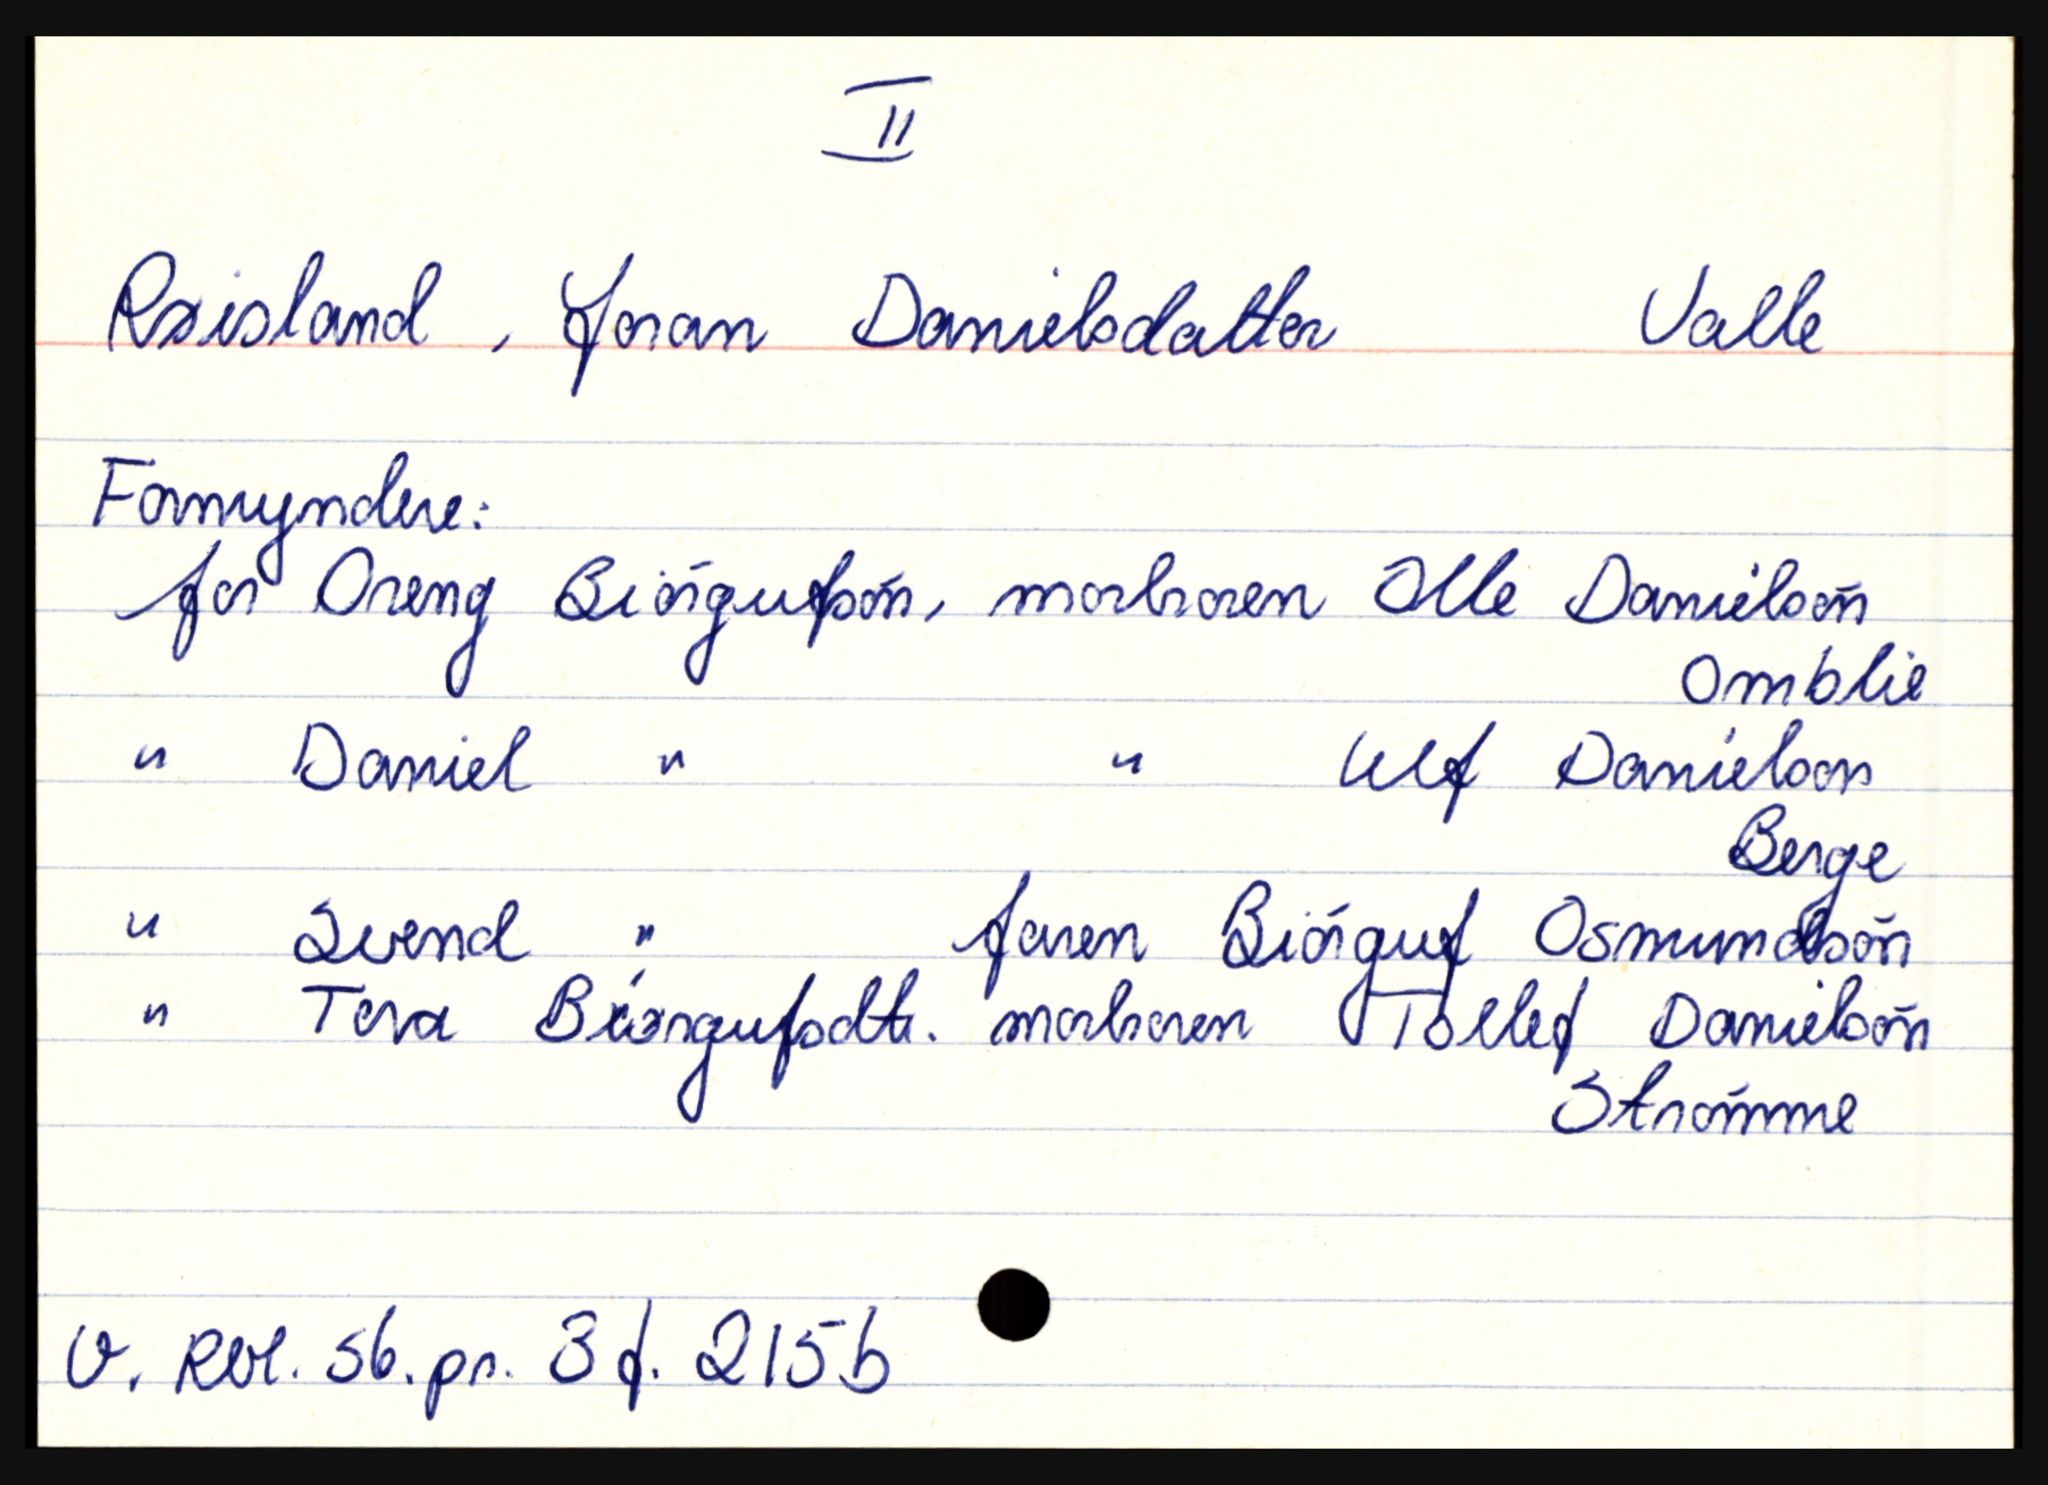 II
Rxisland, Joran Danielsdatter Valle
Formyndere:
for Dreng Biörgufsön, morbroren Olle Danielsön
Omblie
" Daniel " " Ulf Danielson
Berge
" Svend " faren Biörguf Osmundsön
" Tora Biörgufsdtr. morbroren Tollef Danielsön
Strömme
V. Rbl. sb. pr. 3 f. 215b